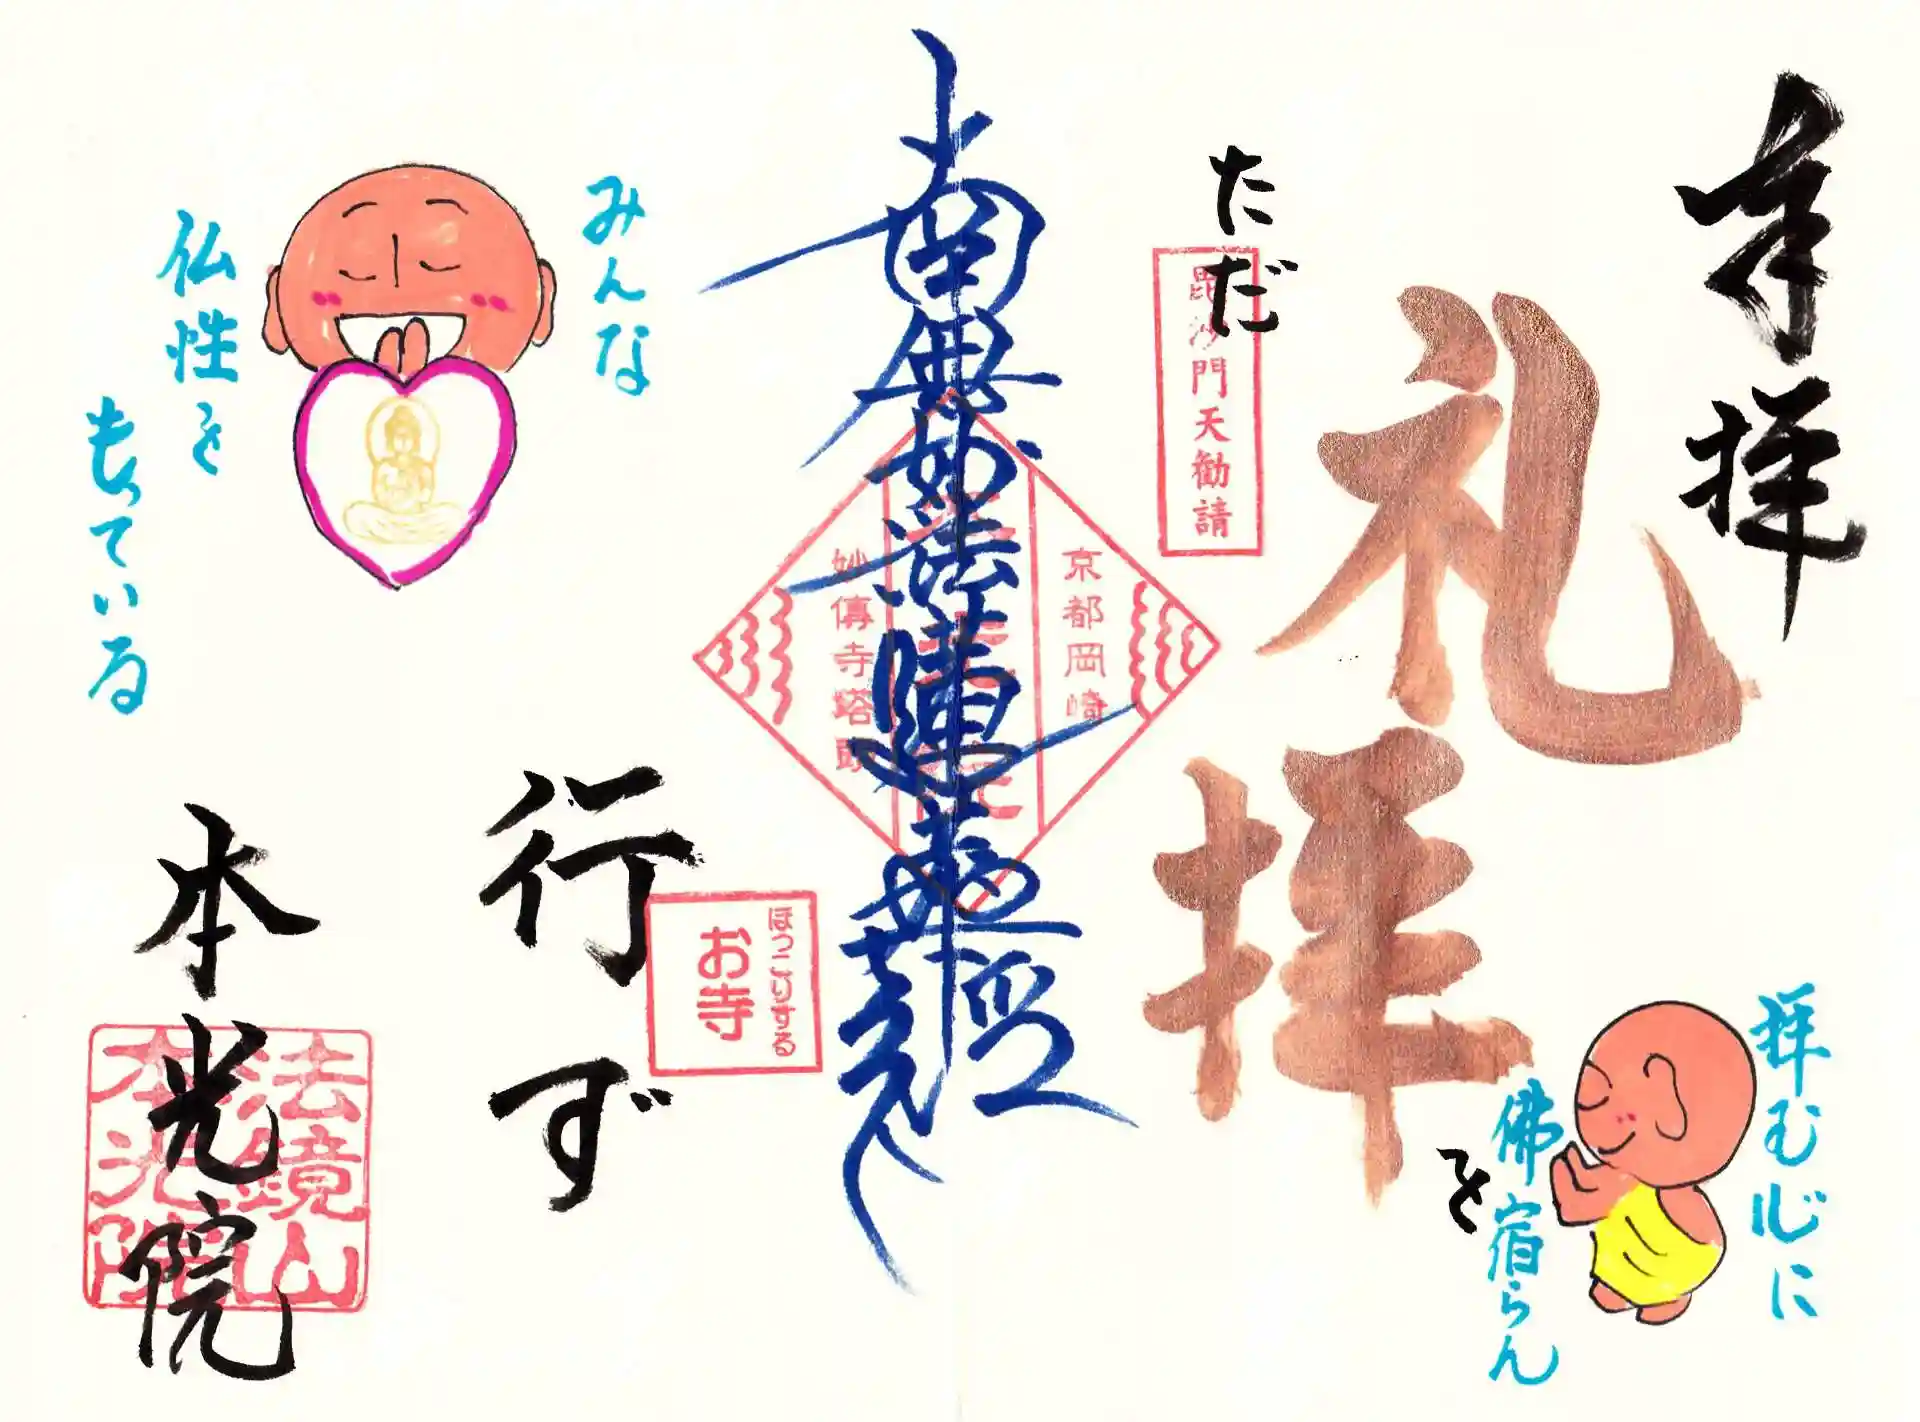 奉拝
ただ
礼拝
を
行ず
拝む心に
佛宿らん
毘沙門天勧請
南無妙法蓮華経
京都岡崎
妙傳寺塔頭
ほっこりする
お寺
みんな
仏性を
もっている
本光院
法鏡山
本光院